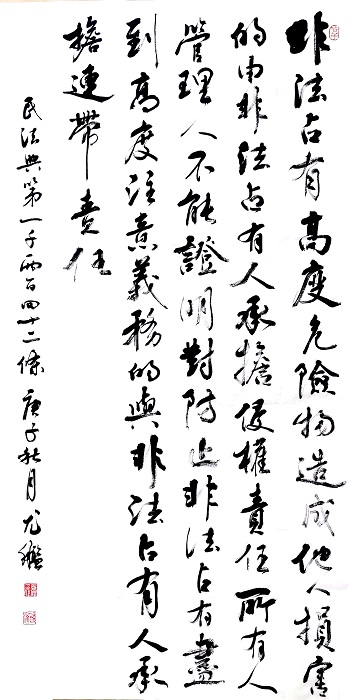 非法占有高度危險物造成他人損害
的由非法占有人承擔侵權責任所有人
管理人不能證明對防止非法占有盡
到高度注意義務的與非法占有人承
擔連帶責任
民法典第一千兩百四十二條 庚子秋月 尤